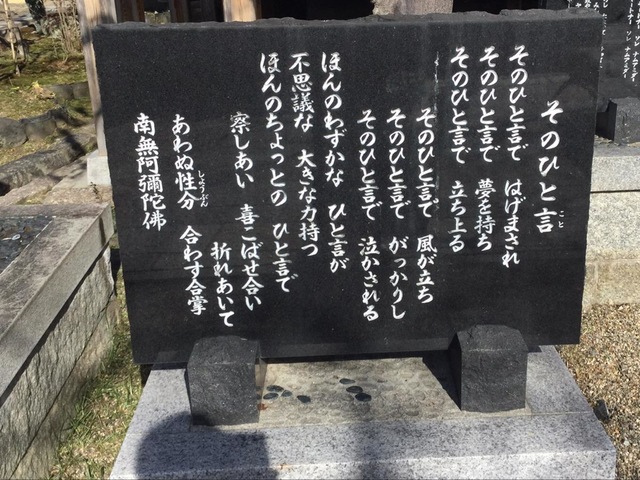 そのひと言
こと
そのひと言で はげまされ
そのひと言で 夢を持ち
そのひと言で 立ち上る
そのひと言で 風が立ち
そのひと言で がっかりし
そのひと言で 泣かされる
ほんのわずかな ひと言が
不思議な 大きな力持つ
ほんのちょっとの ひと言で
察しあい 喜こばせ合い
折れあいて
あわぬ性分 合わす合掌
しょうぶん
南無阿彌陀佛